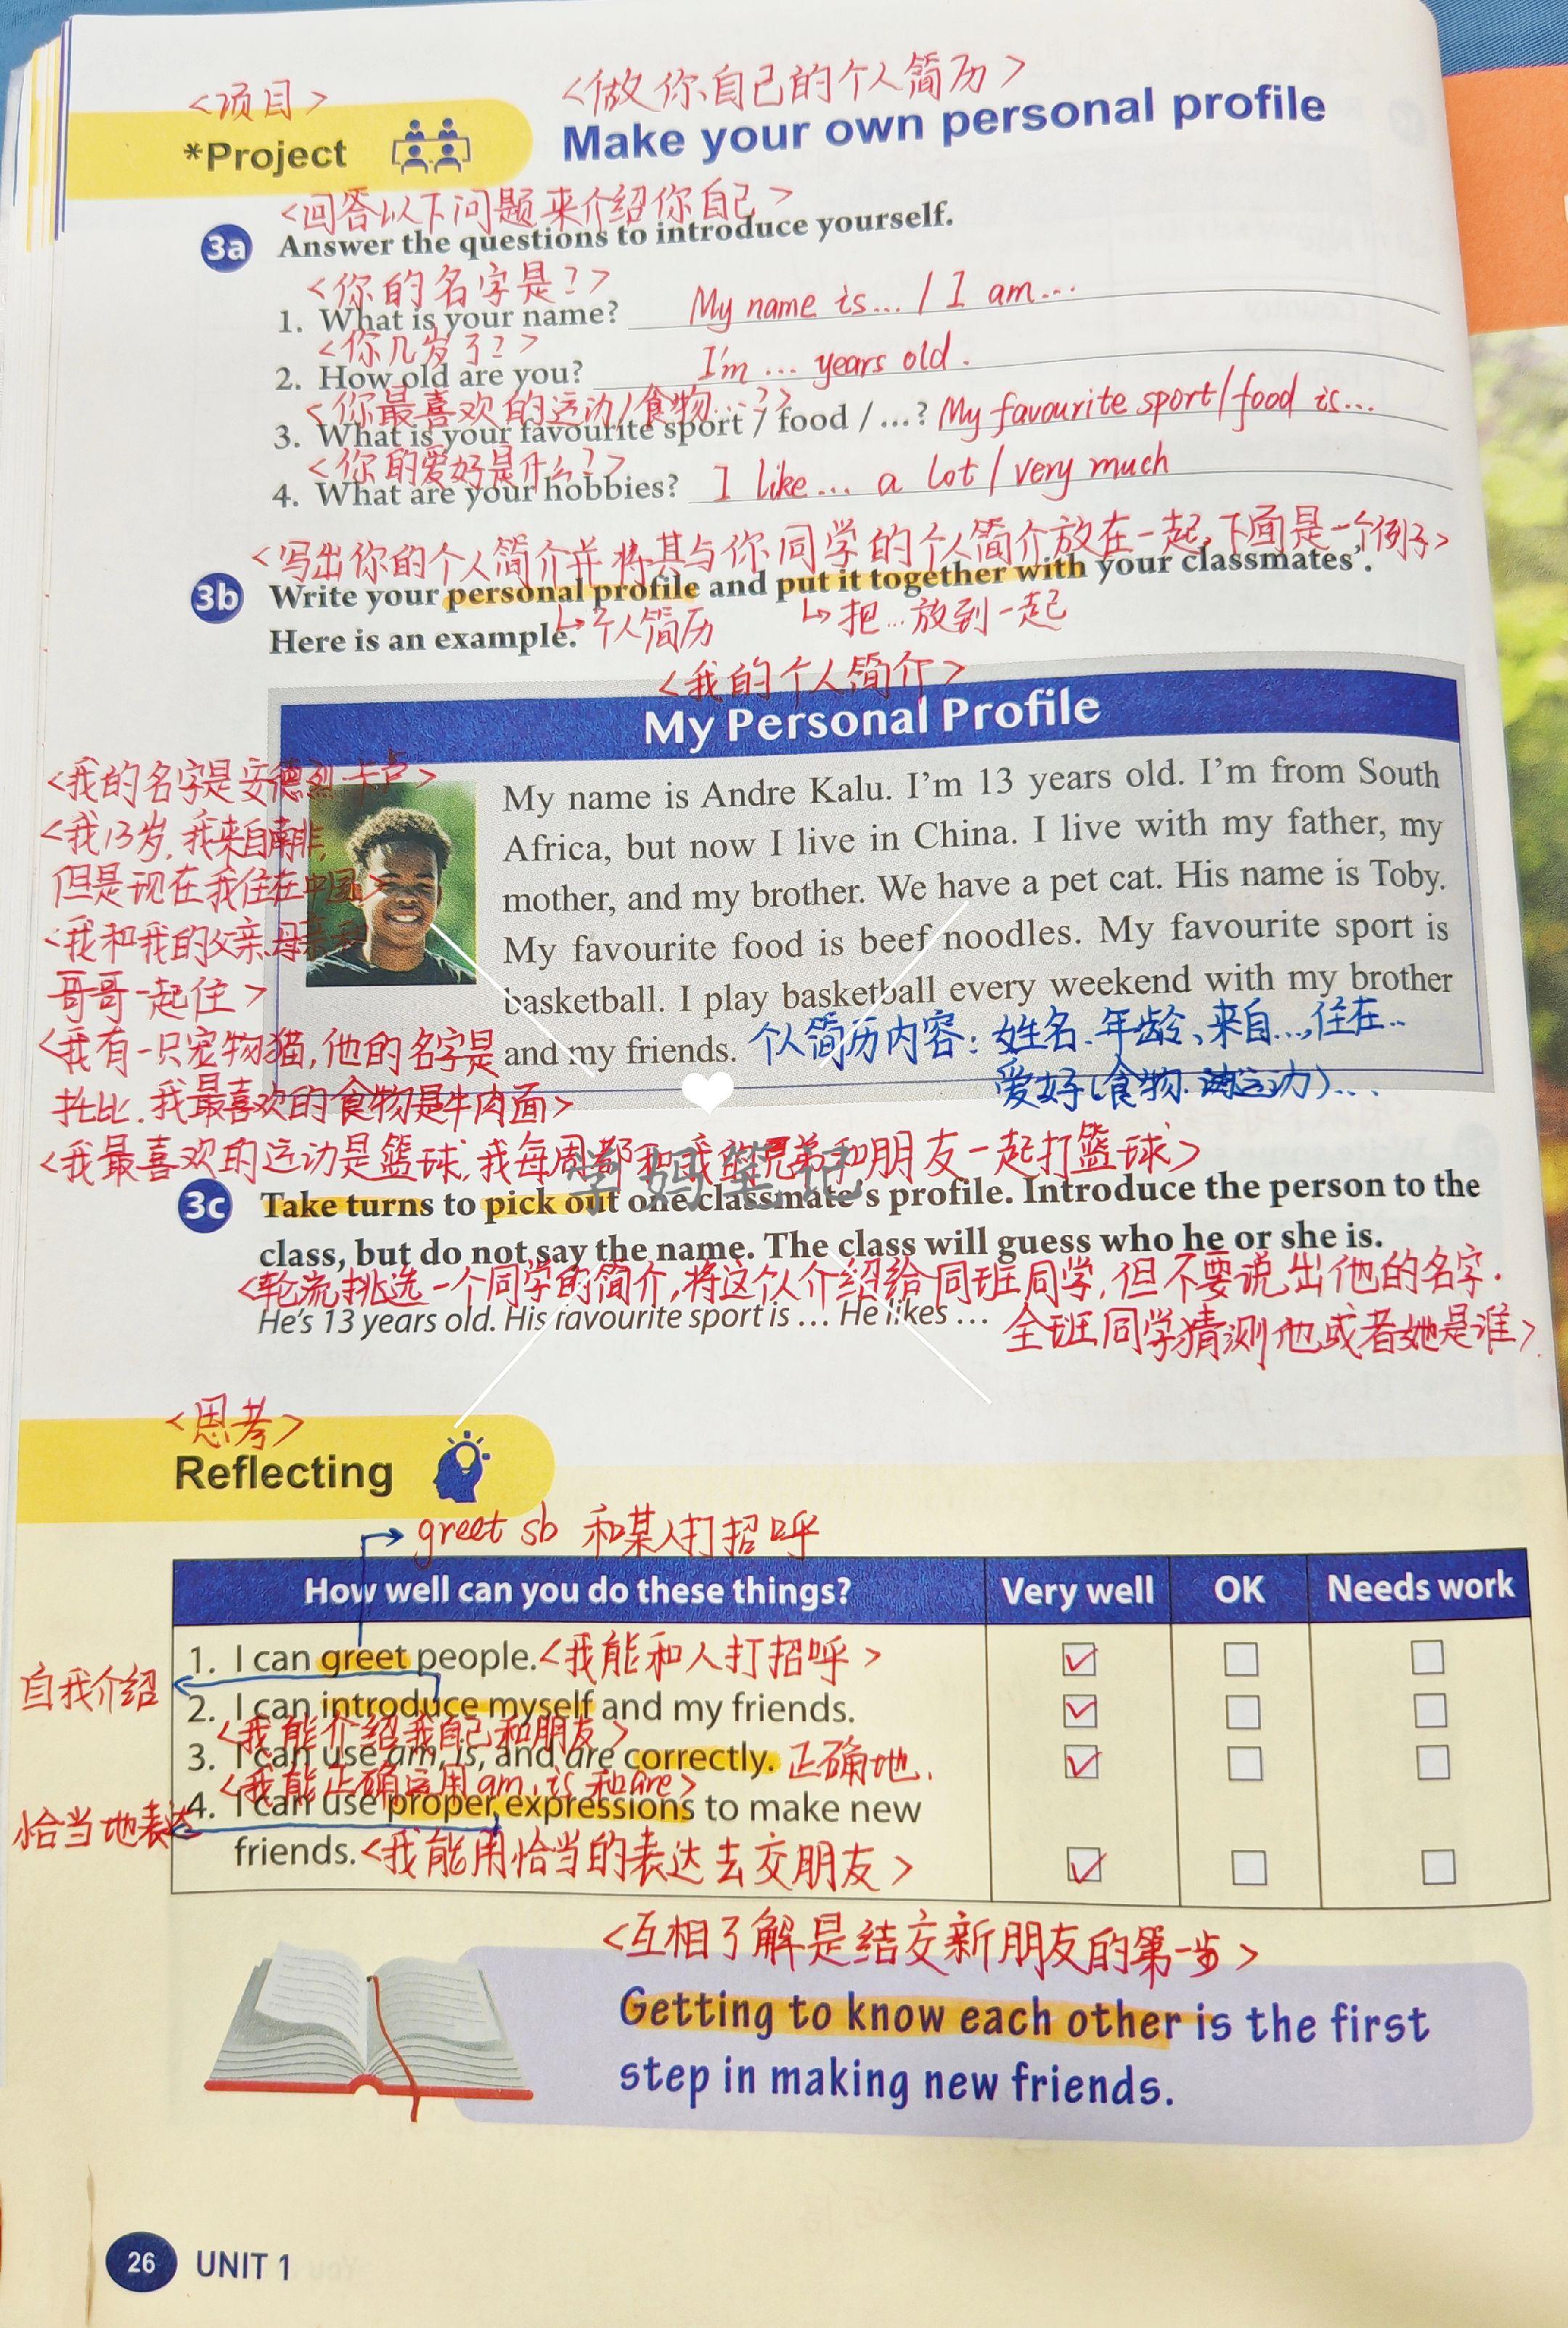 <项目>
<做你自己的个人简历>
*Project
Make your own personal profile
<回答以下问题来介绍你自己>
3a Answer the questions to introduce yourself.
<你的名字是?>
1. What is your name? My name is... / I am...
<你几岁了?>
2. How old are you? I'm ... years old.
<你最喜欢的运动/食物...?>
3. What is your favourite sport / food / ...? My favourite sport/food is...
<你的爱好是什么?>
4. What are your hobbies? I like... a lot / very much
<写出你的个人简介并将其与你同学的个人简介放在一起,下面是一个例子>
3b Write your personal profile and put it together with your classmates'.
Here is an example.
个人简历
把...放到一起
<我的个人简介>
My Personal Profile
<我的名字是安德烈 卡卢>
<我13岁,我来自南非,
但是现在我住在中国>
<我和我的父亲,母亲和
哥哥一起住>
<我有一只宠物猫,他的名字是
托比.我最喜欢的食物是牛肉面>
<我最喜欢的运动是篮球,我每周都和我的兄弟和朋友一起打篮球>
My name is Andre Kalu. I'm 13 years old. I'm from South
Africa, but now I live in China. I live with my father, my
mother, and my brother. We have a pet cat. His name is Toby.
My favourite food is beef noodles. My favourite sport is
basketball. I play basketball every weekend with my brother
and my friends.
个人简历内容:姓名.年龄、来自...,住在...
爱好(食物.运动)...
学妈笔记
3c Take turns to pick out one classmate's profile. Introduce the person to the
class, but do not say the name. The class will guess who he or she is.
<轮流挑选一个同学的简介,将这个人介绍给同班同学,但不要说出他的名字.
全班同学猜测他或者她是谁>
He's 13 years old. His favourite sport is ... He likes ...
<思考>
Reflecting
greet sb 和某人打招呼
How well can you do these things? Very well OK Needs work
1. I can greet people. <我能和人打招呼>
自我介绍
2. I can introduce myself and my friends.
<我能介绍我自己和朋友>
3. I can use am, is, and are correctly. 正确地.
<我能正确运用am,is和are>
恰当地表达
4. I can use proper expressions to make new
friends. <我能用恰当的表达去交朋友>
<互相了解是结交新朋友的第一步>
Getting to know each other is the first
step in making new friends.
26 UNIT 1